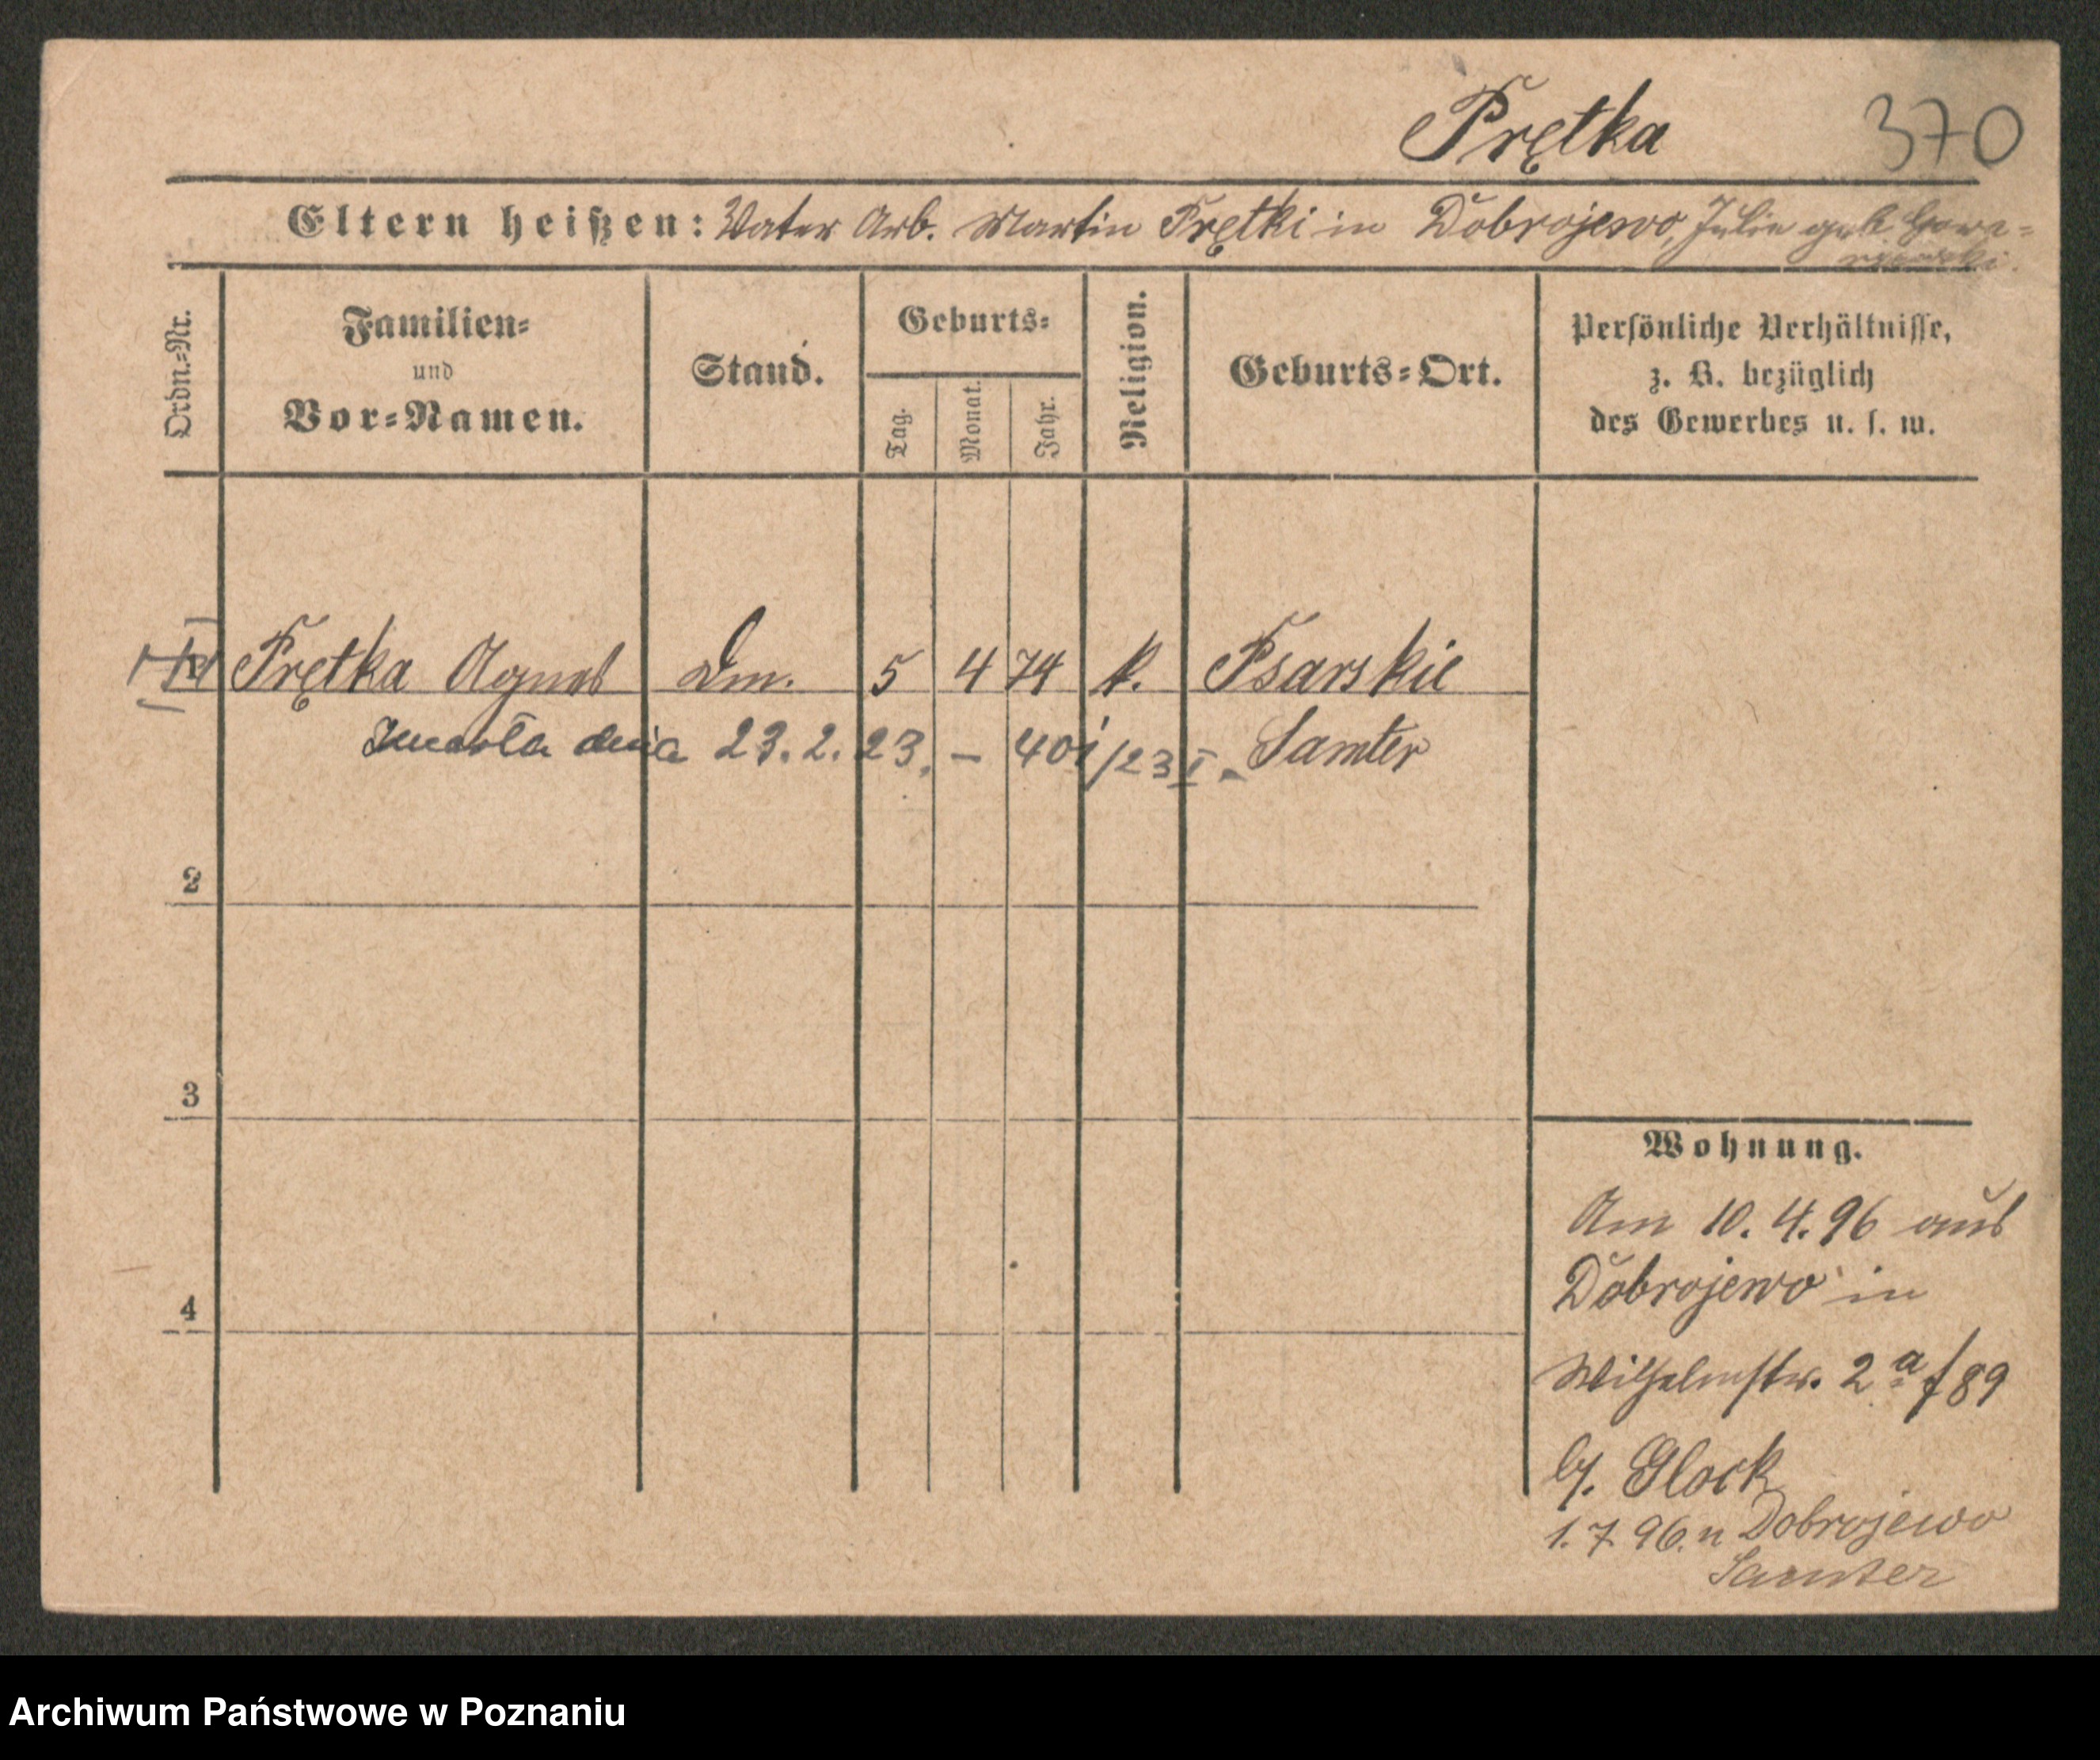 Prętka 370
Eltern heißen: Vater Arb. Martin Prętki in Dobrojewo, Julie geb.
Ordn.=Nr.
Familien=
und
Vor=Namen.
Stand.
Geburts=
Tag.
Monat.
Jahr.
Religion.
Geburts=Ort.
Persönliche Verhältnisse,
z. B. bezüglich
des Gewerbes u. s. w.
Prętka Agnes Dm. 5 4 74 k. Psarskie
Zmarła dnia 23. 2. 23. – 401/23 I. Samter
2
3
4
Wohnung.
Am 10. 4. 96 aus
Dobrojewo in
Wilhelmstr. 2a f 89
b/. Glock
1. 7. 96. n Dobrojewo
Samter
Archiwum Państwowe w Poznaniu